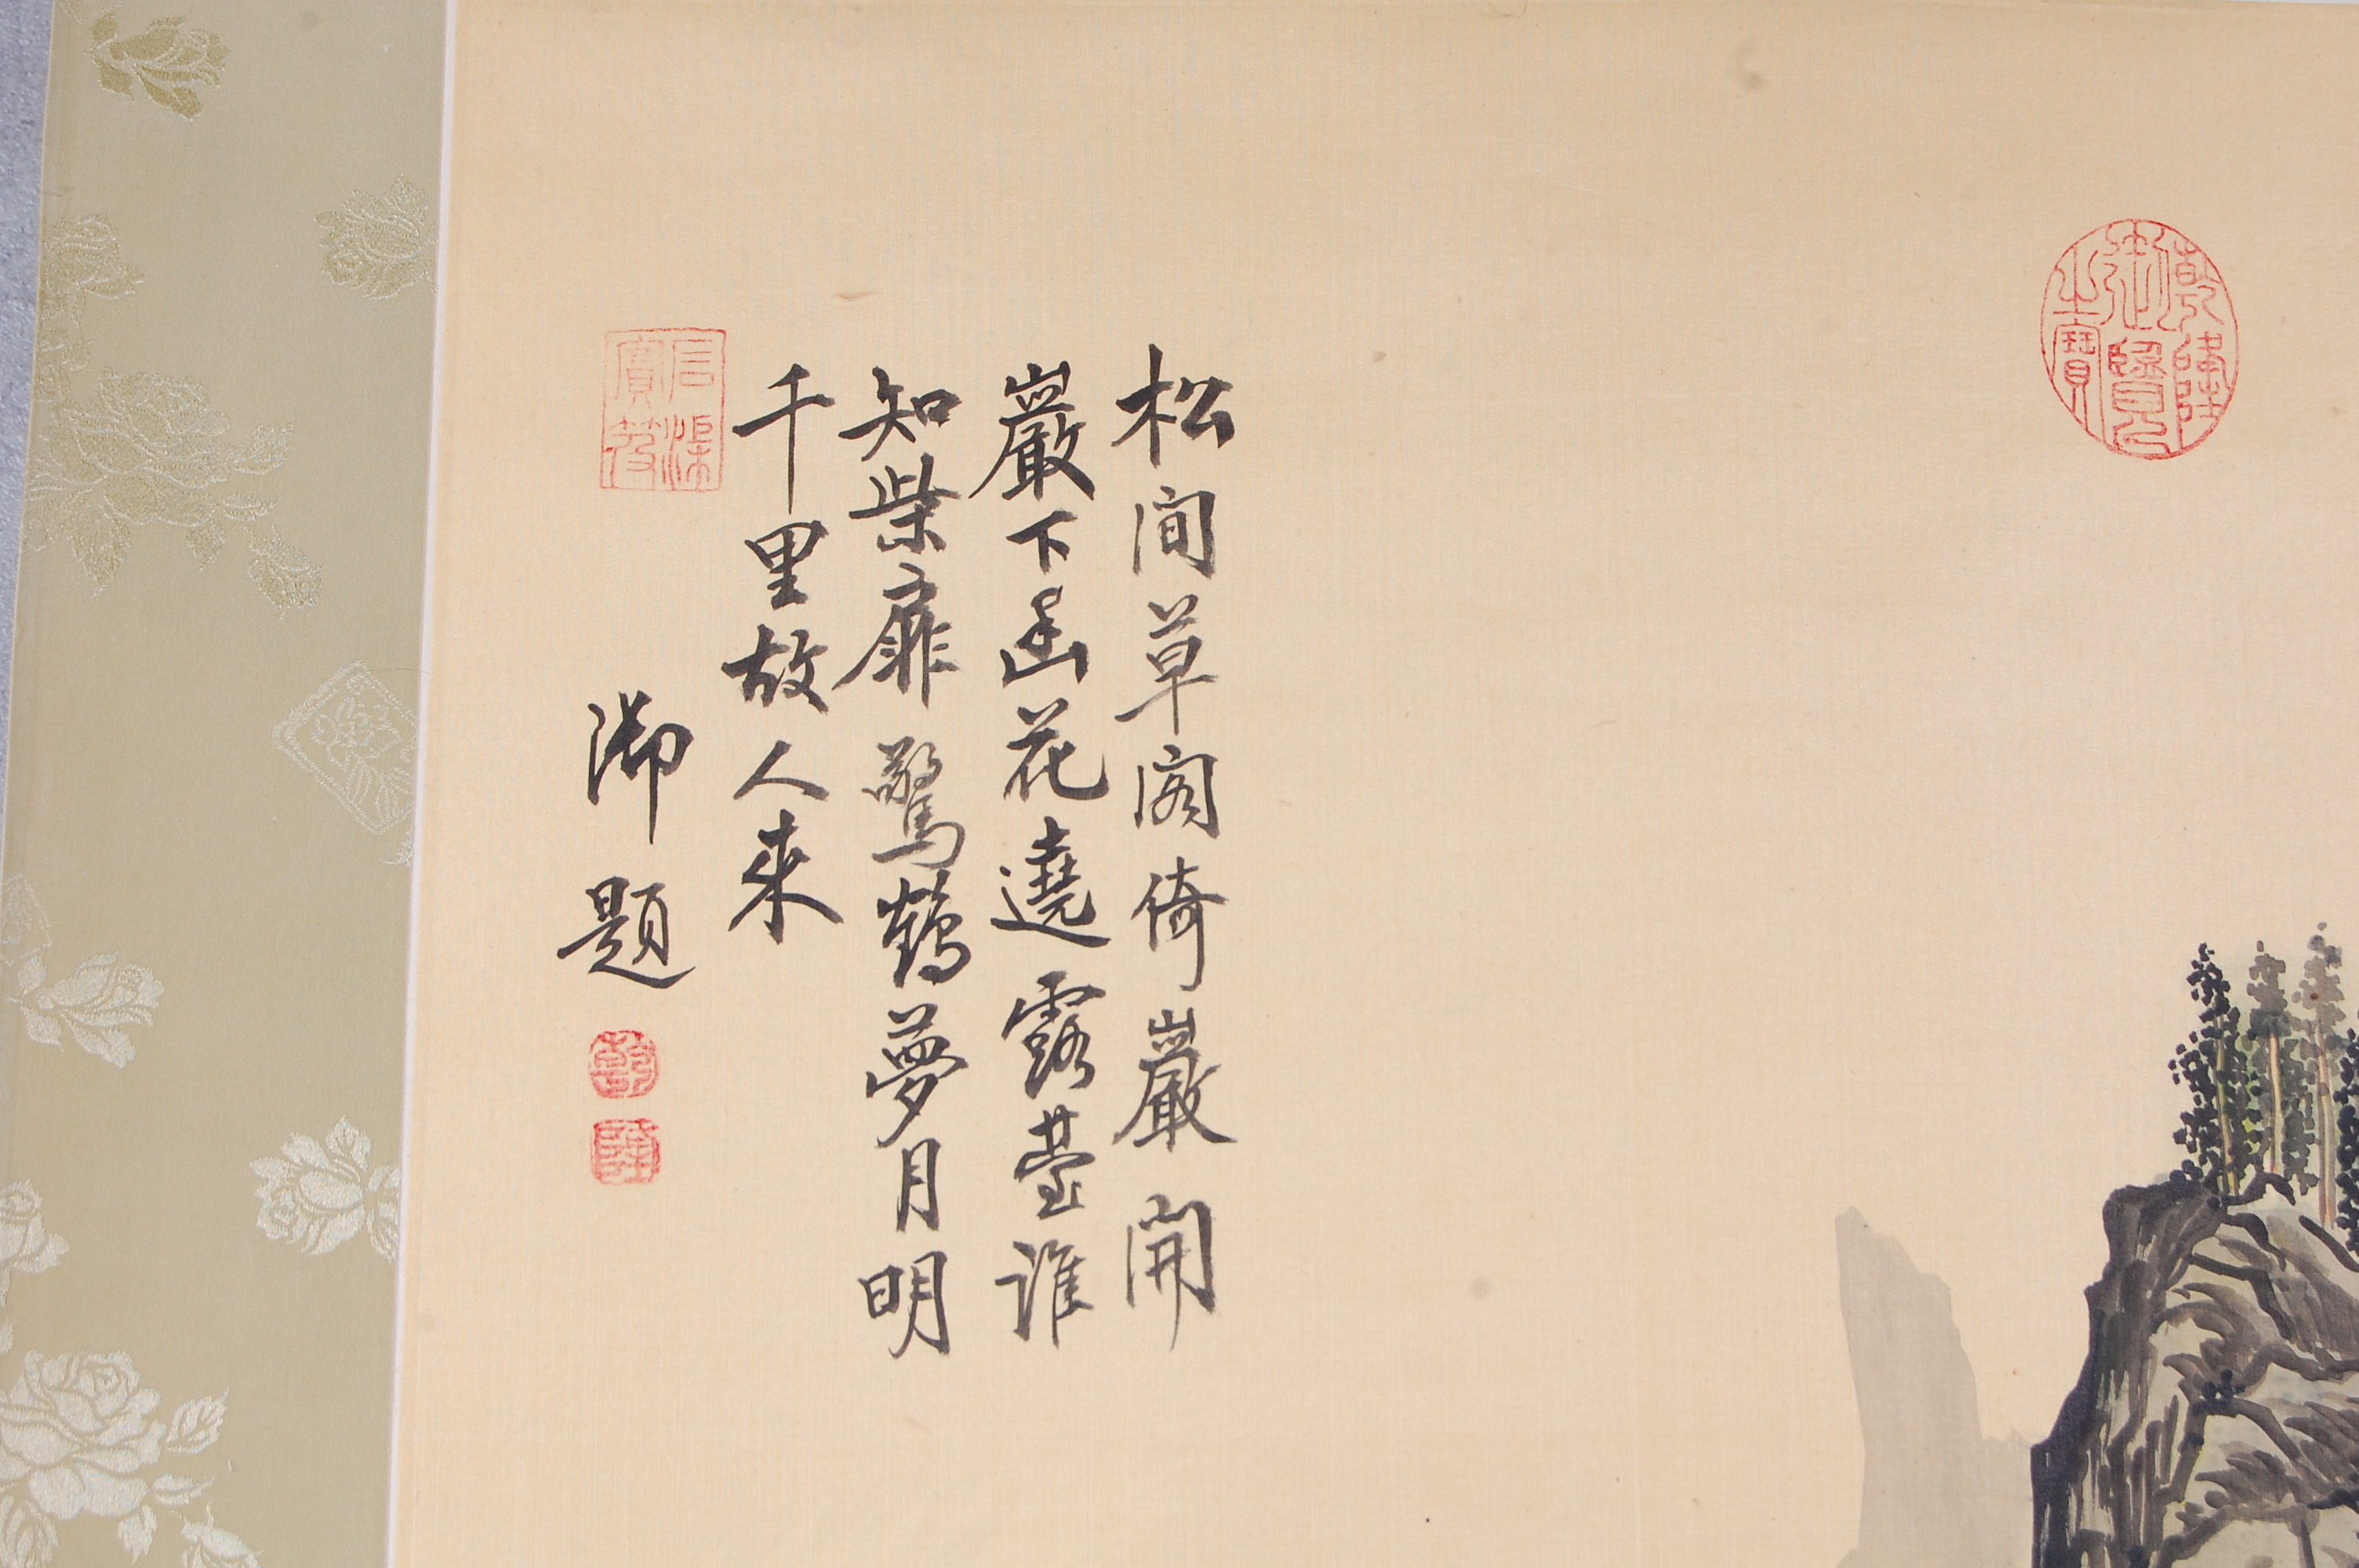 乾隆御覽之寶
松間草閣倚巖開
巖下幽花遶露臺誰
知柴扉驚鶴夢月明
千里故人来
御題
乾
隆
石渠寶笈